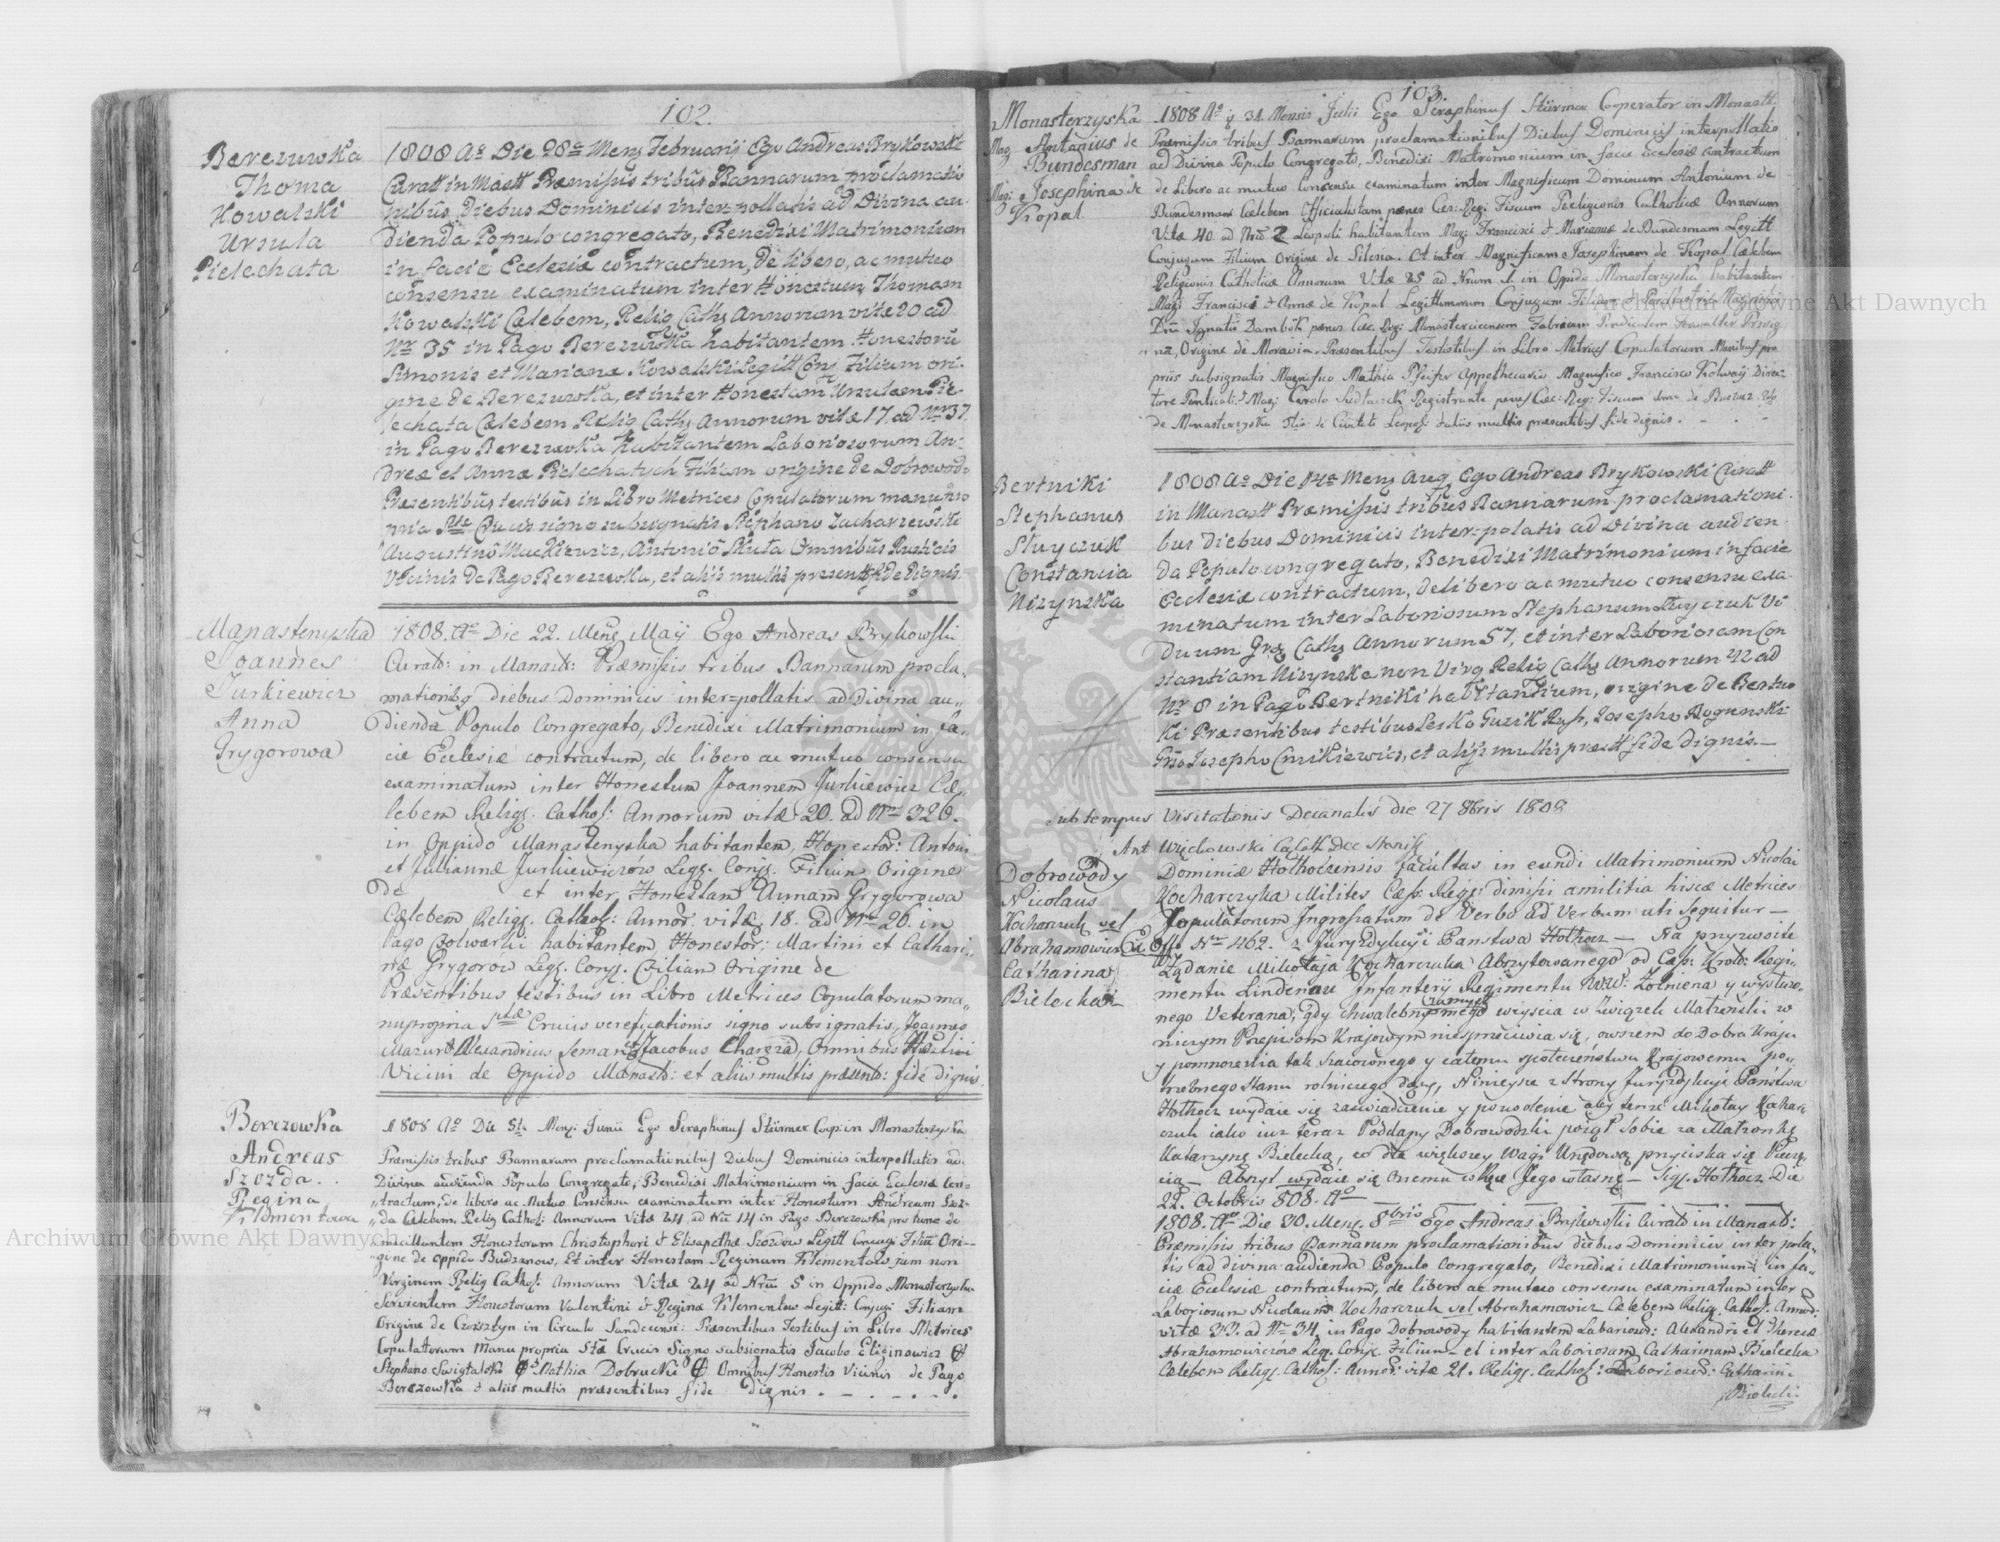 102.
Berezuwka
Thoma
Kowalski
Ursula
Pielechata
1808 Ao Die 28a Menš Februarij Ego Andreas Brykowski
Curatt in Mastt Præmissis tribus Bannarum proclamatio
nibus, Diebus Dominicis inter=pollatis ad Divina au
dienda Populo congregato, Benedixi Matrimonium
in facie Ecclesiæ contractum, de libero, ac mutuo
consensu examinatum inter Honestum Thomam
Kowalski Cælebem, Relig Cath; Annorum vitæ 20 ad
Nr 35 in Pago Berezuwka habitantem Honestorũ
Simonis et Mariana Kowalski Legitt Conj Filium ori=
gine de Berezuwka, et inter Honestam Ursulam Pie-
lechata Cælebem Relig Cath; Annorum vitæ 17. ad Nr 37.
in Pago Berezuwka habitantem Laboriosorum An-
dreæ et Annæ Pielechatych Filiam origine de Dobrowod:
Præsentibus testibus in Libro Metrices Copulatorum manu pro
pria Stæ Crucis signo subsignatis Stephano Zacharzewski
Augustino Mackiewicz, Antonio Skuta Omnibus Rusticis
Vicinis de Pago Berezuwka, et alijs multis present fide dignis.
Manasterzyska
Joannes
Jurkiewicz
Anna
Grygorowa
1808. Ao Die 22. Meñs Maÿ Ego Andreas Brykowski
Curatt: in Manastt: Præmissis tribus Bannarum procla-
mationibq diebus Dominicis inter=pollatis ad Divina au-
dienda Populo Congregato, Benedixi Matrimonium in fa-
cie Ecclesiæ contractum, de libero ac mutuo consensu
examinatum inter Honestum Joannem Jurkiewicz Cæ-
lebem Relig. Cathol: Annorum vitæ 20. ad Nr 326.
in Oppido Manasterzyska habitantem, Honestor: Antoni
et Juliannæ Jurkiewiczów Leg. Conj. Filium Origine
de et inter Honestam Annam Grygorowa
Cælebem Relig. Cathol: Annor. vitæ 18. ad Nr 26. in
Pago Folwarki habitantem Honestor: Martini et Cathari-
næ Grygorów Leg. Conj. Filiam Origine de
Præsentibus testibus in Libro Metrices Copulatorum ma-
nupropria Stæ Crucis vereficationis signo subsignatis, Joannes
Mazur Alexandrius Seman Jacobus Charęza, Omnibus
Vicini de Oppido Manast: et aliis multis præsent: fide dignis
Berezowka
Andreas
Szozda.
Regina
Klementowa
1808 Ao Die 5ta Mens: Junii Ego Seraphinus Stürmer Coop: in Monasterzyska
Præmissis tribus Bannarum proclamationibus Diebus Dominicis interpollatis ad
Divina audienda Populo Congregato, Benedixi Matrimonium in facie Ecclesiæ con-
tractum, de libero ac Mutuo Consensu examinatum inter Honestum Andream Szoz-
da Cælebem, Relig Cathol: Annorum Vitæ 24 ad Nrũ 14 in Pago Berezowka pro tunc do
micillantem Honestorum Christophori & Elisapethæ Szozdow Legitt Conjug Filiũ Ori-
gine de oppido Budzanow, Et inter Honestam Reginam Klementow jam non
Virginem Relig Cathol: Annorum Vitæ 24 ad Nrũ 5 in Oppido Monasterzyska
Servientem Honestorum Valentini & Regina Klementow Legitt: Conjug Filiam
Origine de Czorsztyn in Circulo Sandecensi: Præsentibus Testibus in Libro Metrices
Copulatorum Manu propria Stæ Crucis Signo subsignatis Jacobo
Stephano Swigtalski Mathia Dobrucki Omnibus Honestis Vicinis de Pago
Berezowka & aliis multis præsentibus fide dignis.
103.
Monasterzyska
Mag. Antonius de
Bundesman
Mag: Josephina de
Kopal
1808 Ao ÿ 31. Mensis Julii Ego Seraphinus Stürmer Coperator in Monastt:
Præmissis tribus Bannarum proclamationibus Diebus Dominicis interpollatis
ad Divina Populo Congregato, Benedixi Matrimonium in facie Ecclesiæ contractum
de Libero ac mutuo Consensu examinatum inter Magnificum Dominum Antonium de
Bundesman Cælebem Officialistam penes Cæs: Reg: Fiscum Religionis Catholicæ Annorum
Vitæ 40. ad Nrũ 2 Leopoli habitantem Mag: Francisci & Marianæ de Bundesmann Legitt
Conjugum Filium Origine de Silesia. Et inter Magnificam Josephinam de Kopal Cælebem
Religionis Catholicæ Annorum Vitæ 25 ad Nrum 1. in Oppido Monasterzyska habitantem
Mag: Francisci & Annæ de Kopal Legittimorum Conjugum Filiam
Dñi Ignatii
Origine de Moravia. Præsentibus Testibus in Libro Metrices Copulatorum Manibus pro
priis subsignatis Magnifico Mathia Pfeifer Appothecario Magnifico Francisco Kolwaij Direc-
tore & Mag: Carolo Registrante penes Cæs: Reg: Fiscum
de Monasterzyska de Civitate Leopol: & aliis multis præsentibus fide dignis.
Bertniki
Stephanus
Stuyczuk
Constancia
Nizynska
1808 Ao Die 14a Menş Aug Ego Andreas Brykowski Curatt
in Manastt Præmissis tribus Bannarum proclamationi-
bus diebus Dominicis inter=polatis ad Divina audien
da Populo congregato, Benedixi Matrimonium in facie
Ecclesiæ contractum, de libero ac mutuo consensu exa-
minatum inter Laboriosum Stephanum Stuyczuk Vi
duum Grę Cath; Annorum 57, et inter Laboriosam Con
stantiam Nizynska non Virg Relig Cath; Annorum 42 ad
Nr 8 in Pago Bertniki habitantium, origine de Bertni
ki Præsentibus testibus Lesko Guzik Rus, Josepho Rogunski
Josepho Cmikiewicz, et alijs multis præstt fide dignis.—
Sub tempus Visitationis Decanalis die 27 8bris 1808
Ant Więckowski
Dobrowody
Nicolaus
Kocharczuk vel
Abrahamowicz
Catharina
Bielecka
Dominiæ Hołhoczensis facultas in eundi Matrimonium Nicolai
Kocharczyka Milites Cæs: Reg: dimissi amilitia hisce Metrices
Copulatorum Ingrossatum de Verbo ad Verbum uti Sequitur —
Nr 462. z Juryzdykcyi Panstwa Hołhocz — Na przyzwoite
Żądanie Mikołaja Kocharczuka Abszytowanego od Ces: Krol: Regi-
mentu Lindenau Infanterij Regimentu Żołnierza y wysłuzo-
nego Veterana, gdy chwalebnemu wejscia w Związek Małżeński w
niczym Przepisom Kraiowym niesprzeciwia się, owszem do Dobra Kraju
y pomnożenia tak szacownego y całemu społeczeństwu Kraiowemu po-
trzebnego Stanu rolniczego dąży, Ninieysze z Strony Juryzdykcyi Państwa
Hołhocz wydaie się zaświadczenie y pozwolenie aby tenże Mikołay Kochar-
czuk iako iuż teraz Poddany Dobrowodzki poiął Sobie za Małżonkę
Katarzynę Bielecką, co dla większey Wagi Urzędową przyciska się Pieczę-
cią — Abszyt wydaie się Onemu w ręce Jego własnę — Sig. Hołhocz Die
22. Octobris 808. Ao
1808. Ao Die 30. Mens. 8bris Ego Andreas Brykowski Curatt in Manastt:
Præmissis tribus Bannarum proclamationibus diebus Dominicis inter pola-
tis ad divina audienda Populo Congregato, Benedixi Matrimonium in fa-
ciæ Ecclesiæ contractum, de libero ac mutuo consensu examinatum inter
Laboriosum Nicolaum Kocharczuk vel Abrahamowicz Cælebem Relig. Cathol. Annor:
vitæ 33. ad Nr 34. in Pago Dobrowody habitantem Laborios: Alexandri et Theresæ
Abrahamowiczów Leg. Conj. Filium et inter Laboriosam Catharinam Bielecka
Cælebem Relig. Cathol: Annor: vitæ 21. Relig. Cathol: Laboriosor: Catharin-
Bielecki
Archiwum Główne Akt Dawnych
Archiwum Główne Akt Dawnych